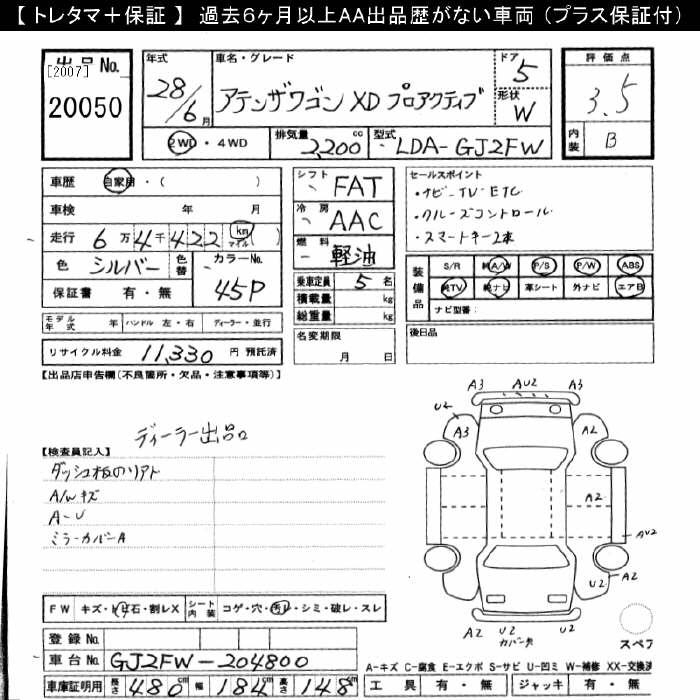 【 トレタマ＋保証 】 過去６ヶ月以上ＡＡ出品歴がない車両（プラス保証付）
出品No.
[2007]
20050
年式 28/6月
車名・グレード アテンザワゴン XD プロアクティブ
ドア 5
形状 W
評価点 3.5
内装 B
2WD・4WD
排気量 2,200 cc
型式 LDA-GJ2FW
車歴 自家用・( )
車検 年 月
走行 6万4千422 km マイル ( )
色 シルバー 色替 カラーNo. 45P
保証書 有・無
シフト FAT
冷房 AAC
燃料 軽油
乗車定員 5名
積載量 kg
総重量 kg
名変期限 月 日
セールスポイント
・ナビ・TV・ETC
・クルーズコントロール
・スマートキー2本
装備品 S/R 純A/W P/S P/W ABS
純TV 純ナビ 革シート 外ナビ エアB
ナビ型番：
後日品
モデル年式 年 ハンドル 左・右 ディーラー・並行
リサイクル料金 11,330 円 預託済
【出品店申告欄(不良箇所・欠品・注意事項等)】
ディーラー出品
【検査員記入】
ダッシュ板のリアト
A/Wキズ
A-U
ミラーカバーA
A3 AU2 A3
U2 A3 A2
A2
AU2
U2 A2
A2 U2 U2
スペア
FW キズ・飛石・割レX シート内装 コゲ・穴・汚レ・シミ・破レ・スレ
登録No.
車台No. GJ2FW-204800
車庫証明用 長さ 480cm 幅 184cm 高さ 148cm
A-キズ C-腐食 E-エクボ S-サビ U-凹ミ W-補修 XX-交換済
工具 有・無 ジャッキ 有・無